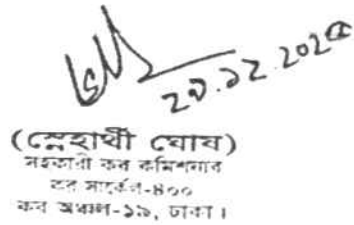 ২৯.১২.২০২৫
(স্নেহার্থী ঘোষ)
সহকারী কর কমিশনার
কর সার্কেল-৪০০
কর অঞ্চল-১৯, ঢাকা।